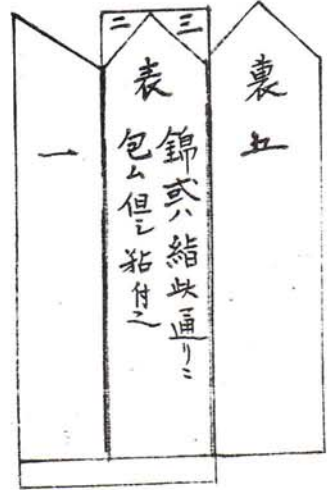 裏
紅
三
二
表
錦或ハ絹此通リニ
包ム但シ粘付ニ
一